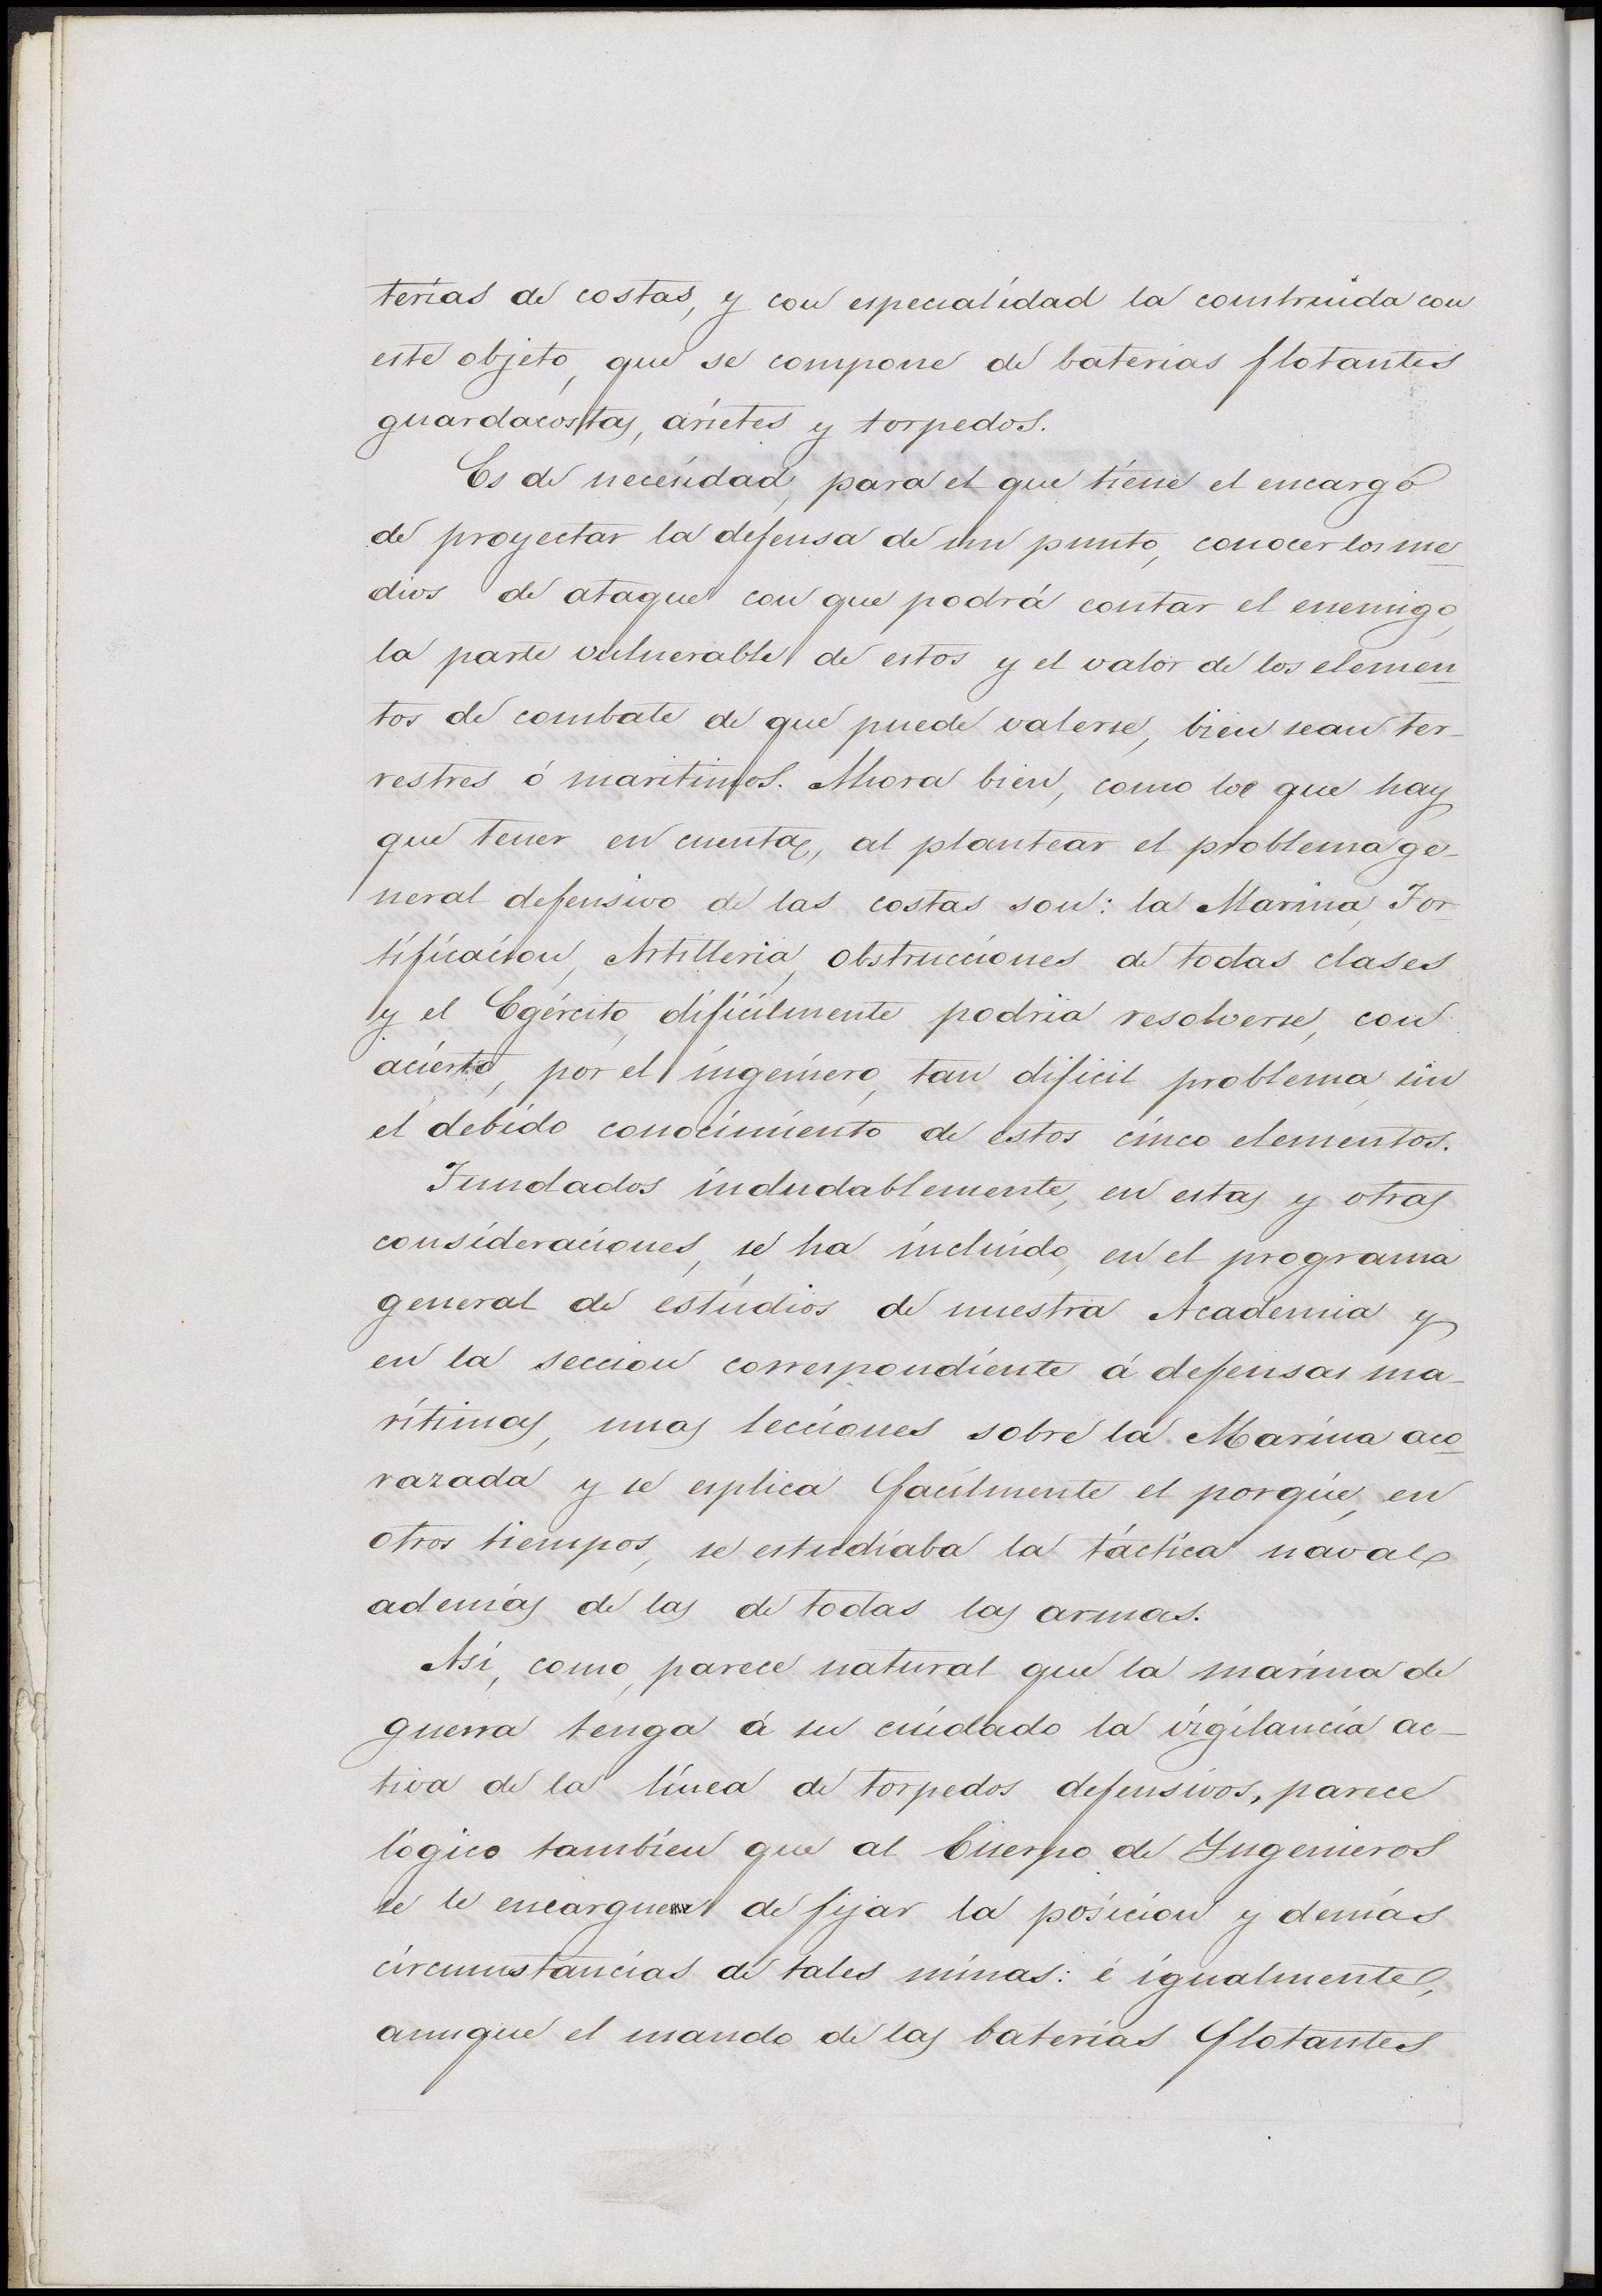 terías de costas, y con especialidad la construida con
este objeto, que se compone de baterias flotantes
guardacostas, arietes y torpedos.
Es de necesidad, para el que tiene el encargo
de proyectar la defensa de un punto, conocer los me-
dios de ataque con que podrá contar el enemigo,
la parte vulnerable de estos y el valor de los elemen-
tos de combate de que puede valerse, bien sean ter-
restres ó maritimos. Ahora bien, como lo que hay
que tener en cuenta, al plantear el problema ge-
neral defensivo de las costas son: la Marina, For-
tificacion, Artilleria, obstrucciones de todas clases
y el Egército, dificilmente podria resolverse, con
acierto, por el ingeniero, tan dificil problema, sin
el debido conocimiento de estos cinco elementos.
Fundados indudablemente, en estas y otras
consideraciones, se ha incluido, en el programa
general de estudios de nuestra Academia y
en la seccion correspondiente á defensas ma-
rítimas, unas lecciones sobre la Marina aco-
razada y se esplica facilmente el porque, en
otros tiempos, se estudiaba la táctica naval
además de las de todas las armas.
Así, como, parece natural que la marina de
guerra tenga á su cuidado la vigilancia ac-
tiva de la línea de torpedos defensivos, parece
lógico tambien que al Cuerpo de Ingenieros
se le encargue de fijar la posicion y demás
circunstancias de tales minas: é igualmente,
aunque el mando de las baterías flotantes